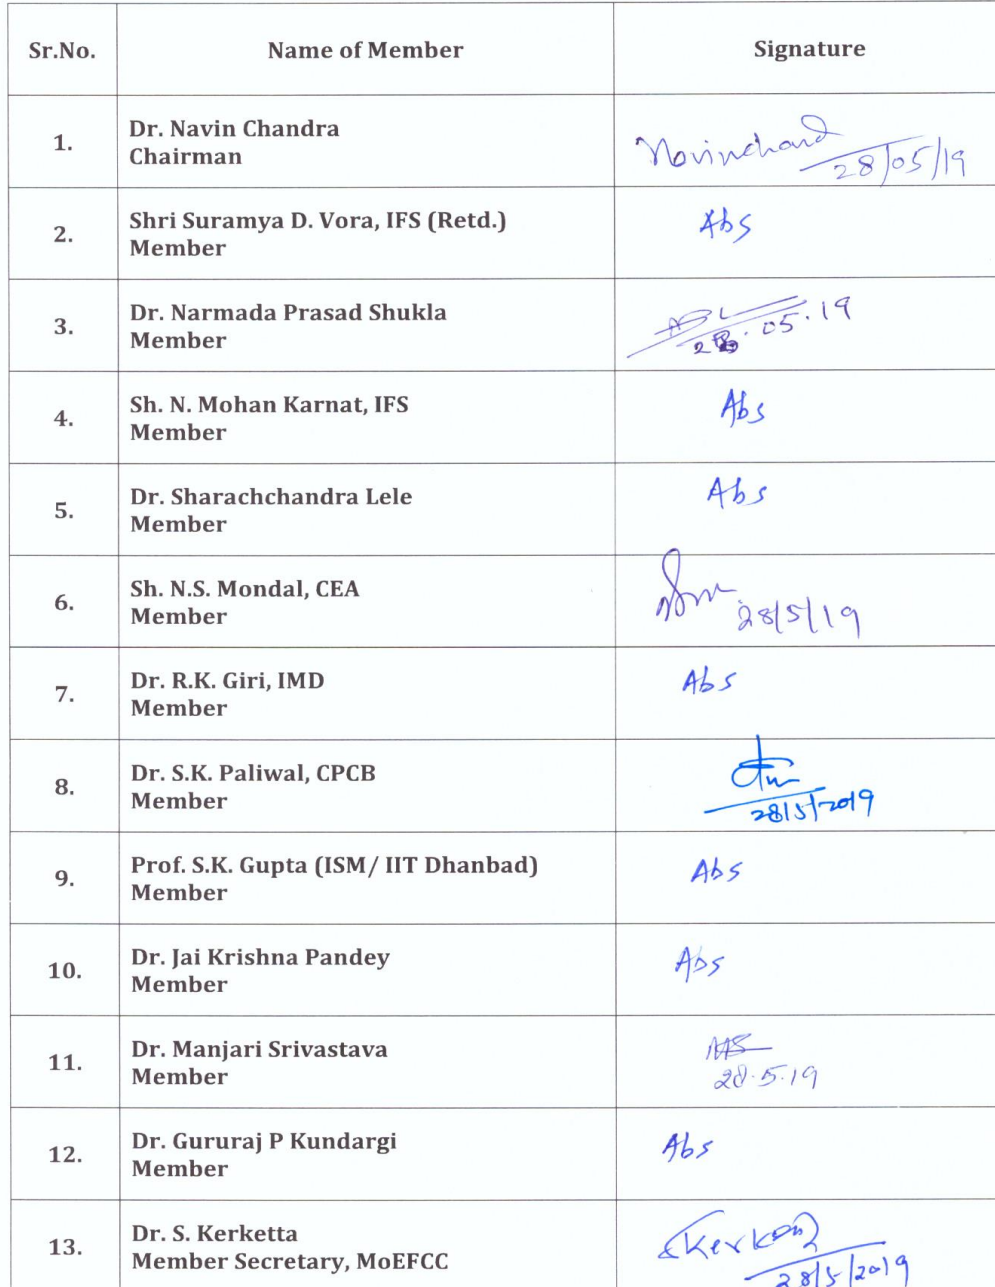 Sr.No. Name of Member Signature
1. Dr. Navin Chandra
Chairman
Navinchand
28/05/19
2. Shri Suramya D. Vora, IFS (Retd.)
Member
Abs
3. Dr. Narmada Prasad Shukla
Member
28.05.19
4. Sh. N. Mohan Karnat, IFS
Member
Abs
5. Dr. Sharachchandra Lele
Member
Abs
6. Sh. N.S. Mondal, CEA
Member
28/5/19
7. Dr. R.K. Giri, IMD
Member
Abs
8. Dr. S.K. Paliwal, CPCB
Member
28/5/2019
9. Prof. S.K. Gupta (ISM/ IIT Dhanbad)
Member
Abs
10. Dr. Jai Krishna Pandey
Member
Abs
11. Dr. Manjari Srivastava
Member
28.5.19
12. Dr. Gururaj P Kundargi
Member
Abs
13. Dr. S. Kerketta
Member Secretary, MoEFCC
28/5/2019